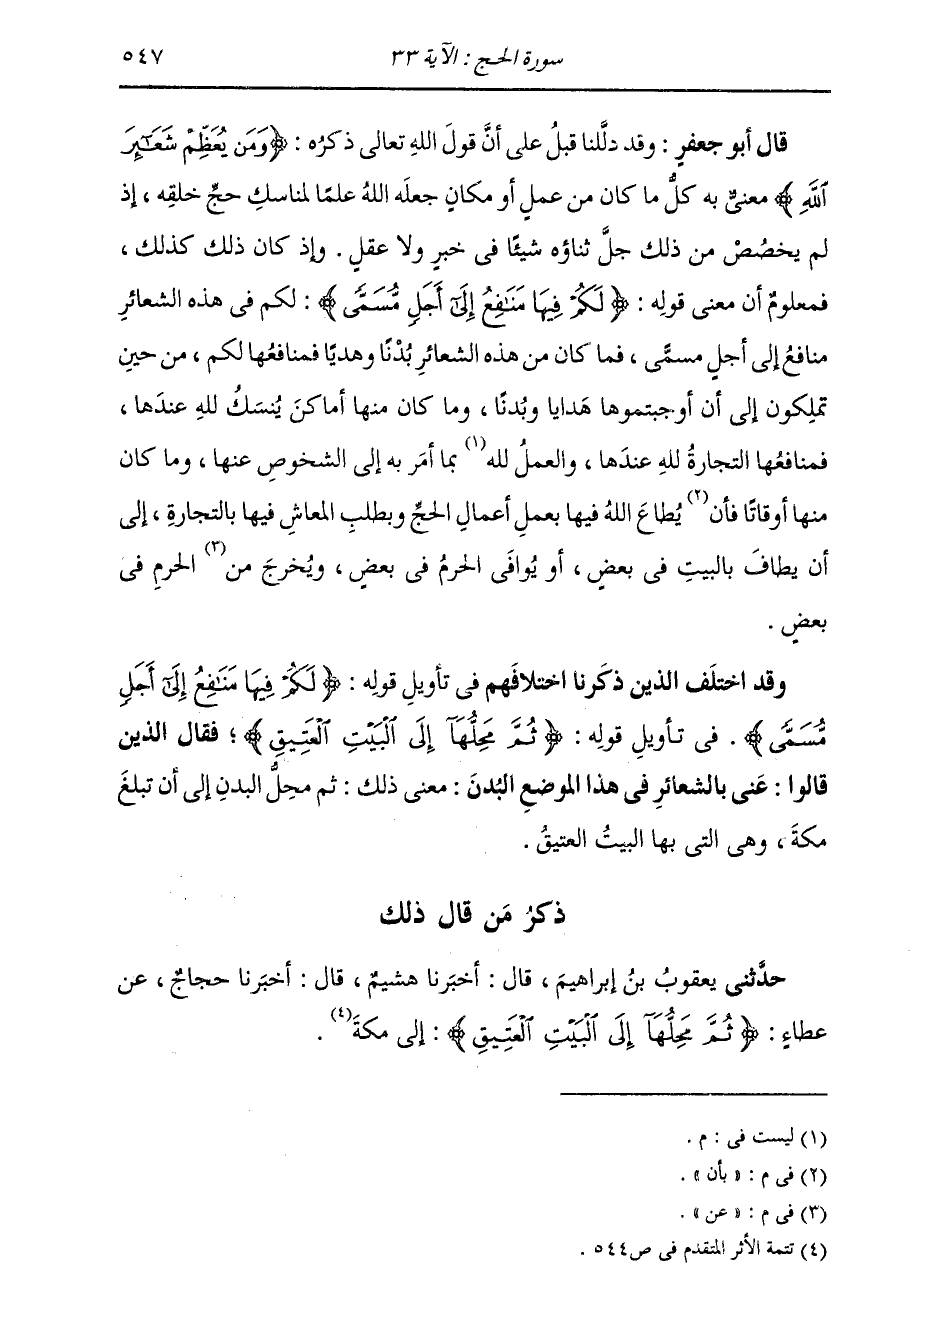 سورة الحج : الآية ٣٣ ٥٤٧
قال أبو جعفرٍ : وقد دلَّلنا قبلُ على أنَّ قولَ اللهِ تعالى ذكرُه : ﴿وَمَن يُعَظِّمْ شَعَٰٓئِرَ
ٱللَّهِ﴾ معنىٌّ به كلُّ ما كان من عملٍ أو مكانٍ جعلَه اللهُ علمًا لمناسكِ حجِّ خلقِه ، إذ
لم يخصُصْ من ذلك جلَّ ثناؤه شيئًا فى خبرٍ ولا عقلٍ . وإذ كان ذلك كذلك ،
فمعلومٌ أن معنى قولِه : ﴿لَكُمْ فِيهَا مَنَٰفِعُ إِلَىٰٓ أَجَلٍ مُّسَمًّى﴾ : لكم فى هذه الشعائرِ
منافعُ إلى أجلٍ مسمًّى ، فما كان من هذه الشعائرِ بُدْنًا وهديًا فمنافعُها لكم ، من حينِ
تملِكون إلى أن أوجبتموها هَدايا وبُدنًا ، وما كان منها أماكنَ يُنسَكُ للهِ عندَها ،
فمنافعُها التجارةُ للهِ عندَها ، والعملُ لله(١) بما أمَر به إلى الشخوصِ عنها ، وما كان
منها أوقاتًا فأن(٢) يُطاعَ اللهُ فيها بعملِ أعمالِ الحجِّ وبطلبِ المعاشِ فيها بالتجارةِ ، إلى
أن يطافَ بالبيتِ فى بعضٍ ، أو يُوافَى الحرمُ فى بعضٍ ، ويُخرجَ من(٣) الحرمِ فى
بعضٍ .
وقد اختلَف الذين ذكَرنا اختلافَهم فى تأويلِ قولِه : ﴿لَكُمْ فِيهَا مَنَٰفِعُ إِلَىٰٓ أَجَلٍ
مُّسَمًّى﴾ . فى تأويلِ قولِه : ﴿ثُمَّ مَحِلُّهَآ إِلَى ٱلْبَيْتِ ٱلْعَتِيقِ﴾ ؛ فقال الذين
قالوا : عَنى بالشعائرِ فى هذا الموضعِ البُدنَ : معنى ذلك : ثم محِلُّ البدنِ إلى أن تبلغَ
مكةَ ، وهى التى بها البيتُ العتيقُ .
ذكرُ مَن قال ذلك
حدَّثنى يعقوبُ بنُ إبراهيمَ ، قال : أخبَرنا هشيمٌ ، قال : أخبَرنا حجاجٌ ، عن
عطاءٍ : ﴿ثُمَّ مَحِلُّهَآ إِلَى ٱلْبَيْتِ ٱلْعَتِيقِ﴾ : إلى مكةَ(٤) .
(١) ليست فى : م .
(٢) فى م : « بأن » .
(٣) فى م : « عن » .
(٤) تتمة الأثر المتقدم فى ص٥٤٤ .